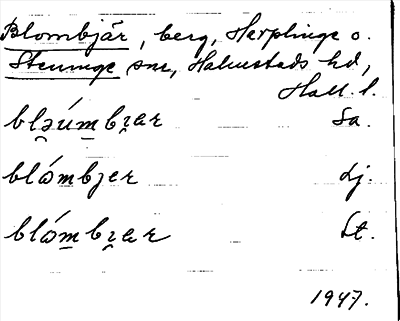 Blombjär, berg, Harplinge o.
Steninge snr, Halmstads hd,
Hall. l.
blǝúm̱bi̯ar Sa.
blómbjer Lj.
blóm̱bi̯ar St.
1947.